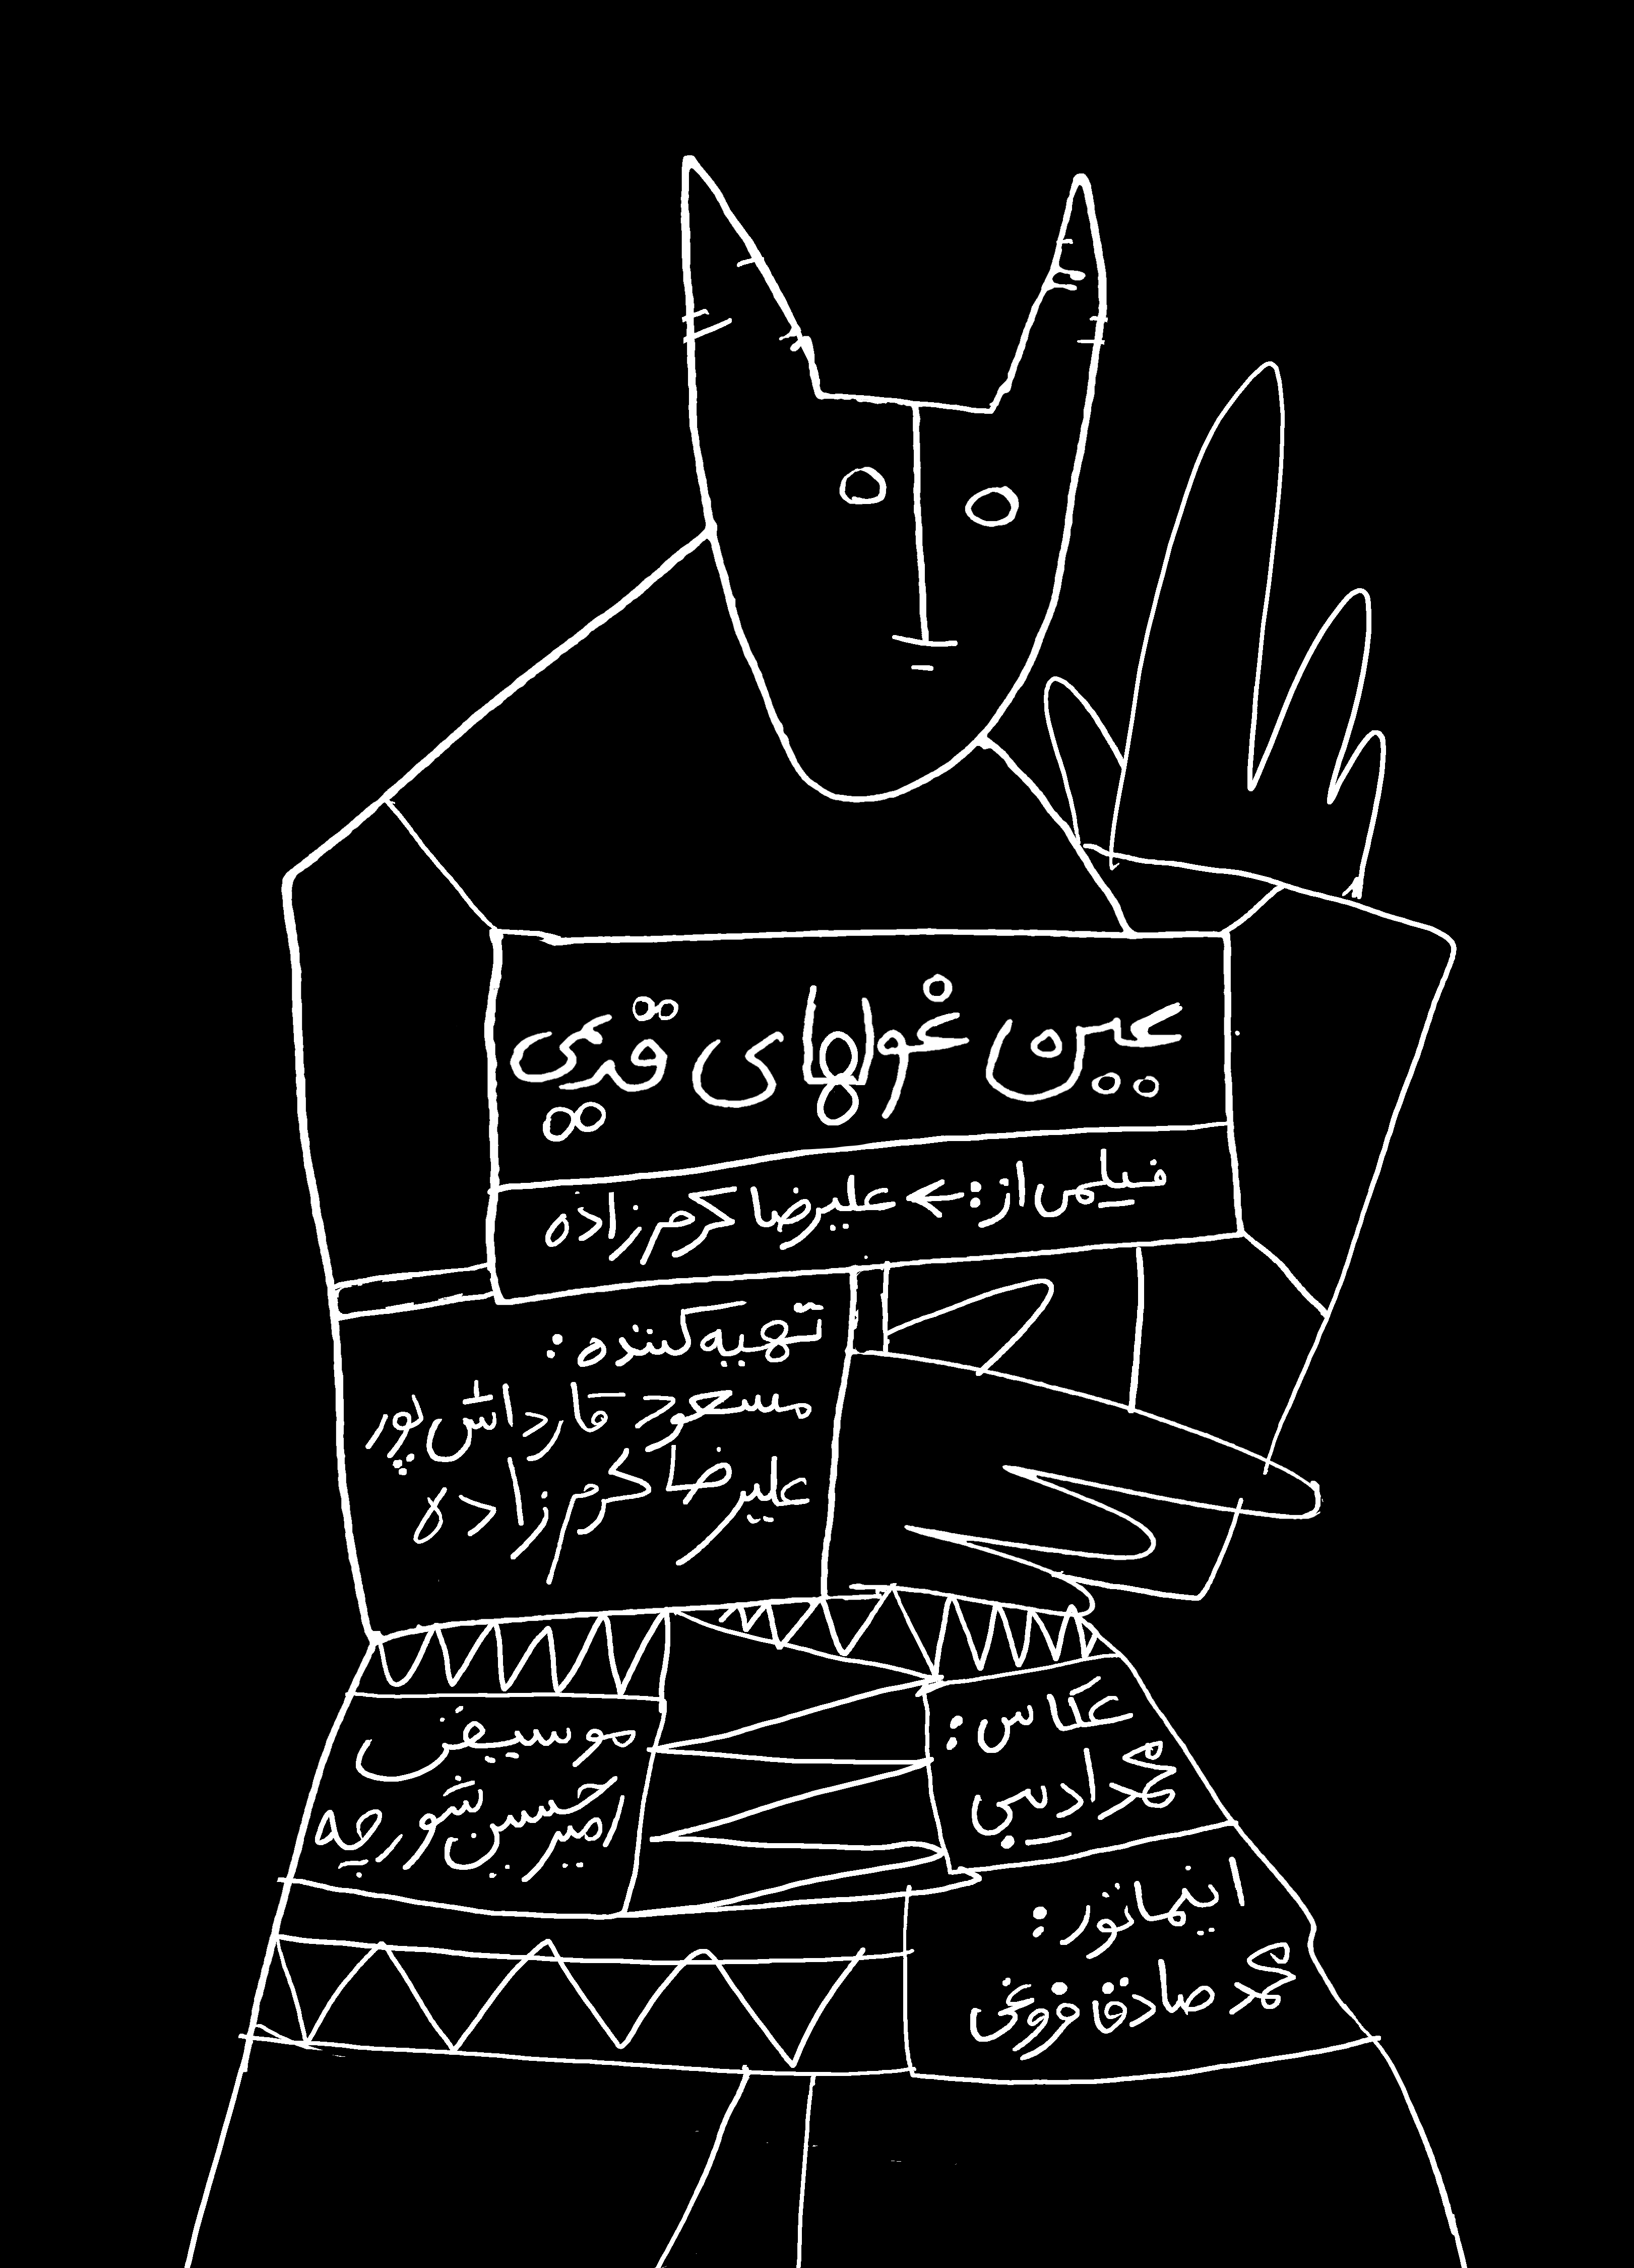 عین غولهای قیری
فیلمی از :← علیرضا کرم‌زاده
تهیه کننده :
مسعود قارداش‌پور
علیرضا کرم‌زاده
موسیقی
امیرحسین
عکاس :
محمد ادیبی
انیماتور :
محمد صادق فروغی